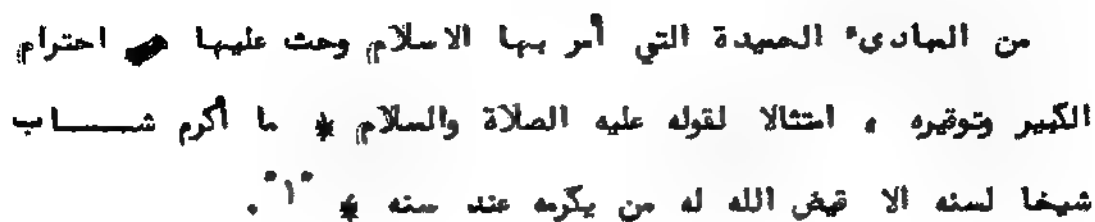 من المبادىء الحميدة التي أمر بها الاسلام وحث عليها هي احترام
الكبير وتوقيره ، امتثالا لقوله عليه الصلاة والسلام * ما أكرم شـــــاب
شيخا لسنه الا قيض الله له من يكرمه عند سنه * "١".